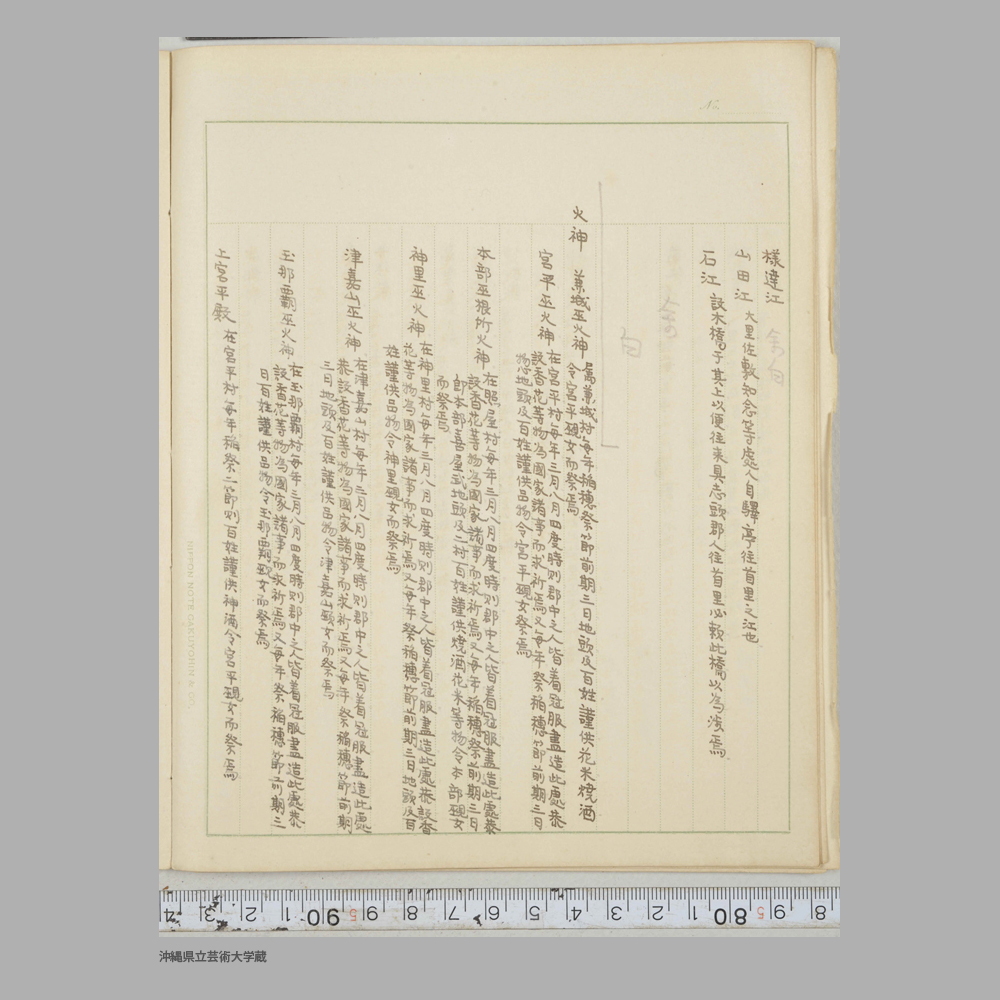 15
樣達江
山田江 大里佐敷知念等處人自驛亭往首里之江也
石江 設木橋于其上以便往来具志頭郡人往首里必款此橋以為渡焉
火神 兼城巫火神 属兼城村毎年稲穂祭節前期三日地頭及百姓謹供花米燒酒
令宮平覡女而祭焉
宮平巫火神 在宮平村毎年三月八月四度時則郡中之人皆着冠服盡造此處恭
設香花等物為國家諸事而求祈焉又毎年祭稲穂節前期三日
惣地頭及百姓謹供品物令宮平覡女祭焉
本部巫根所火神 在照屋村毎年三月八月四度時則郡中之人皆着冠服盡造此處恭
設香花等物為國家諸事而求祈焉又毎年稲穂祭前期三日
即本部喜屋武地頭及二村百姓謹供燒酒花米等物令本部覡女
而祭焉
神里巫火神 在神里村毎年三月八月四度時則郡中之人皆着冠服盡造此處恭設香
花等物為國家諸事而求祈焉又毎年祭稲穂節前期三日地頭及百
姓謹供品物令神里覡女而祭焉
津嘉山巫火神 在津嘉山村毎年三月八月四度時則郡中之人皆着冠服盡造此處
恭設香花等物為國家諸事而求祈焉又毎年祭稲穂節前期
三日地頭及百姓謹供品物令津嘉山覡女而祭焉
玉那覇巫火神 在玉那覇村毎年三月八月四度時則郡中之人皆着冠服盡造此處恭
設香花等物為國家諸事而求祈焉又毎年祭稲穂節前期三
日百姓謹供品物令玉那覇覡女而祭焉
上宮平殿 在宮平村毎年稲祭二節則百姓謹供神酒令宮平覡女而祭焉
NIPPON NOTE GAKUYOHIN & CO.,
4 3 2 1 90 9 5 8 7 6 5 4 3 2 1 80 9 5 8
沖縄県立芸術大学蔵